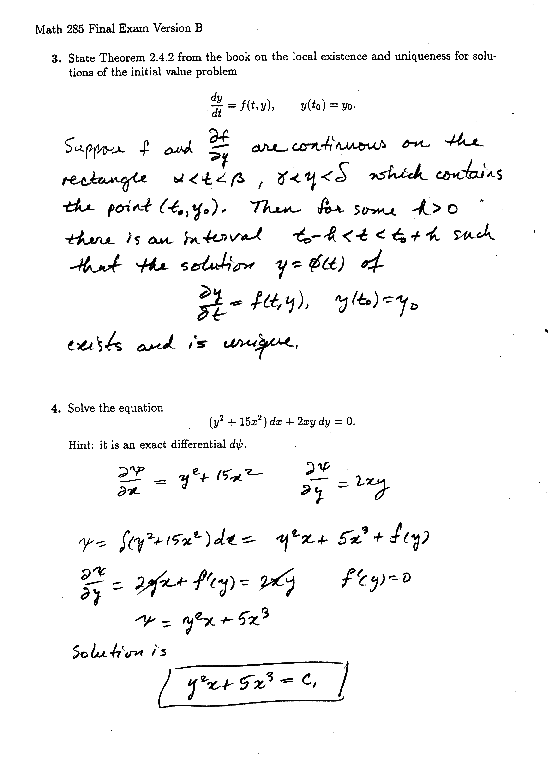 Math 285 Final Exam Version B
3. State Theorem 2.4.2 from the book on the local existence and uniqueness for solu-
tions of the initial value problem
dy/dt = f(t, y), y(t₀) = y₀.
Suppose f and ∂f/∂y are continuous on the
rectangle α<t<β, γ<y<δ which contains
the point (t₀,y₀). Then for some h>0
there is an interval t₀-h<t<t₀+h such
that the solution y=ϕ(t) of
∂y/∂t = f(t,y), y(t₀)=y₀
exists and is unique.
4. Solve the equation
(y² + 15x²) dx + 2xy dy = 0.
Hint: it is an exact differential dψ.
∂ψ/∂x = y²+15x² ∂ψ/∂y = 2xy
ψ= ∫(y²+15x²)dx = y²x+5x³+f(y)
∂ψ/∂y = 2yx+f'(y)=2xy f'(y)=0
ψ = y²x+5x³
Solution is
y²x+5x³=C,